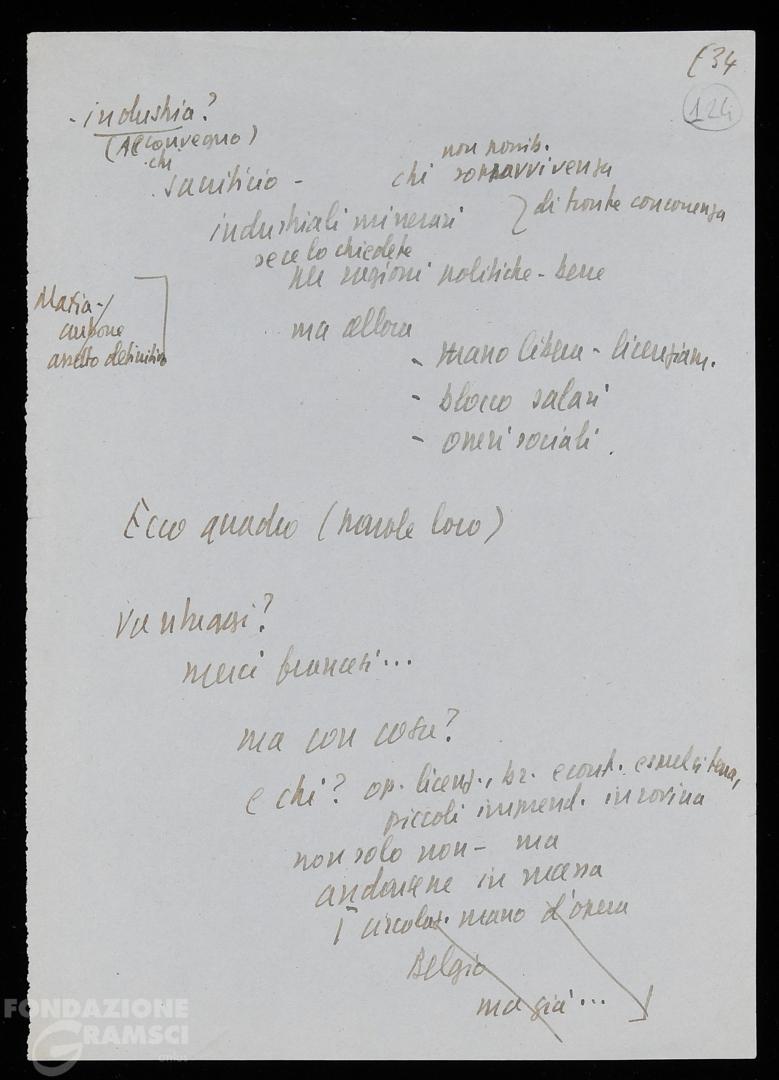 E34
124
- industria?
(A convegno)
chi
sacrificio -
non possib.
chi sopravvivenza
industriali minerari
di fronte concorrenza
se ce lo chiedete
per ragioni politiche - bene
Mafia -
carbone
assetto definitivo
ma allora
- mano libera - licenziam.
- blocco salari
- oneri sociali.
Ecco quadro (parole loro)
Vantaggi?
merci francesi...
ma con cosa?
e chi? op. licenz., br. e cont. espulsi terra,
piccoli imprend. in rovina
non solo non - ma
andarsene in massa
circolaz. mano d'opera
Belgio
ma già...
FONDAZIONE
GRAMSCI
onlus